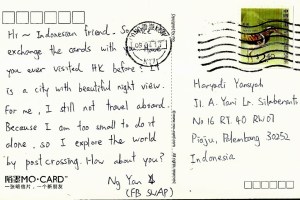 Hi ~ Indonesian friend. So
exchange the cards with you
you ever visited HK before?
is a city with beautiful night view.
For me, I still not travel aboard.
Because I am too small to do it
alone, so I explore the world
by post crossing. How about you?
Ng Yan
(FB SWAP)
陌素MO·CARD
一张明信片，一个新朋友
Haryadi Yansyah
Jl. A. Yani Lr.
No 16 RT. 40 RW 07
Plaju, Palembang 30252
Indonesia